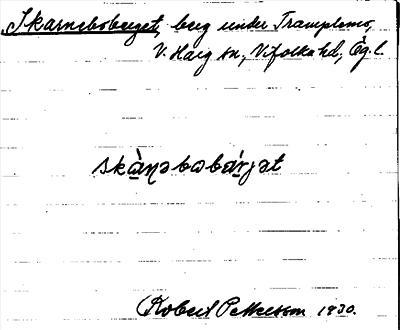 Skarneboberget, berg under Tramplemo,
V. Harg sn, Vifolka hd, Ög. l.
skàṇəbobárjət
Robert Pettersson 1930.